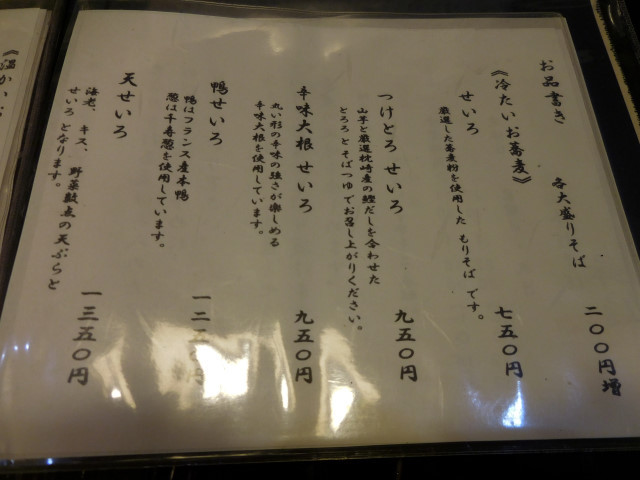 お品書き
各大盛りそば 二〇〇円増
《冷たいお蕎麦》
せいろ 七五〇円
厳選した蕎麦粉を使用した もりそば です。
つけとろ せいろ 九五〇円
山芋と厳選枕崎産の鰹だしを合わせた
とろろ と そばつゆ でお召し上がりください。
辛味大根 せいろ 九五〇円
丸い形の辛味の強さが楽しめる
辛味大根を使用しています。
鴨せいろ
鴨はフランス産本鴨
葱は千寿葱を使用しています。
天せいろ 一三五〇円
海老、キス、野菜数点の天ぷらと
せいろ となります。